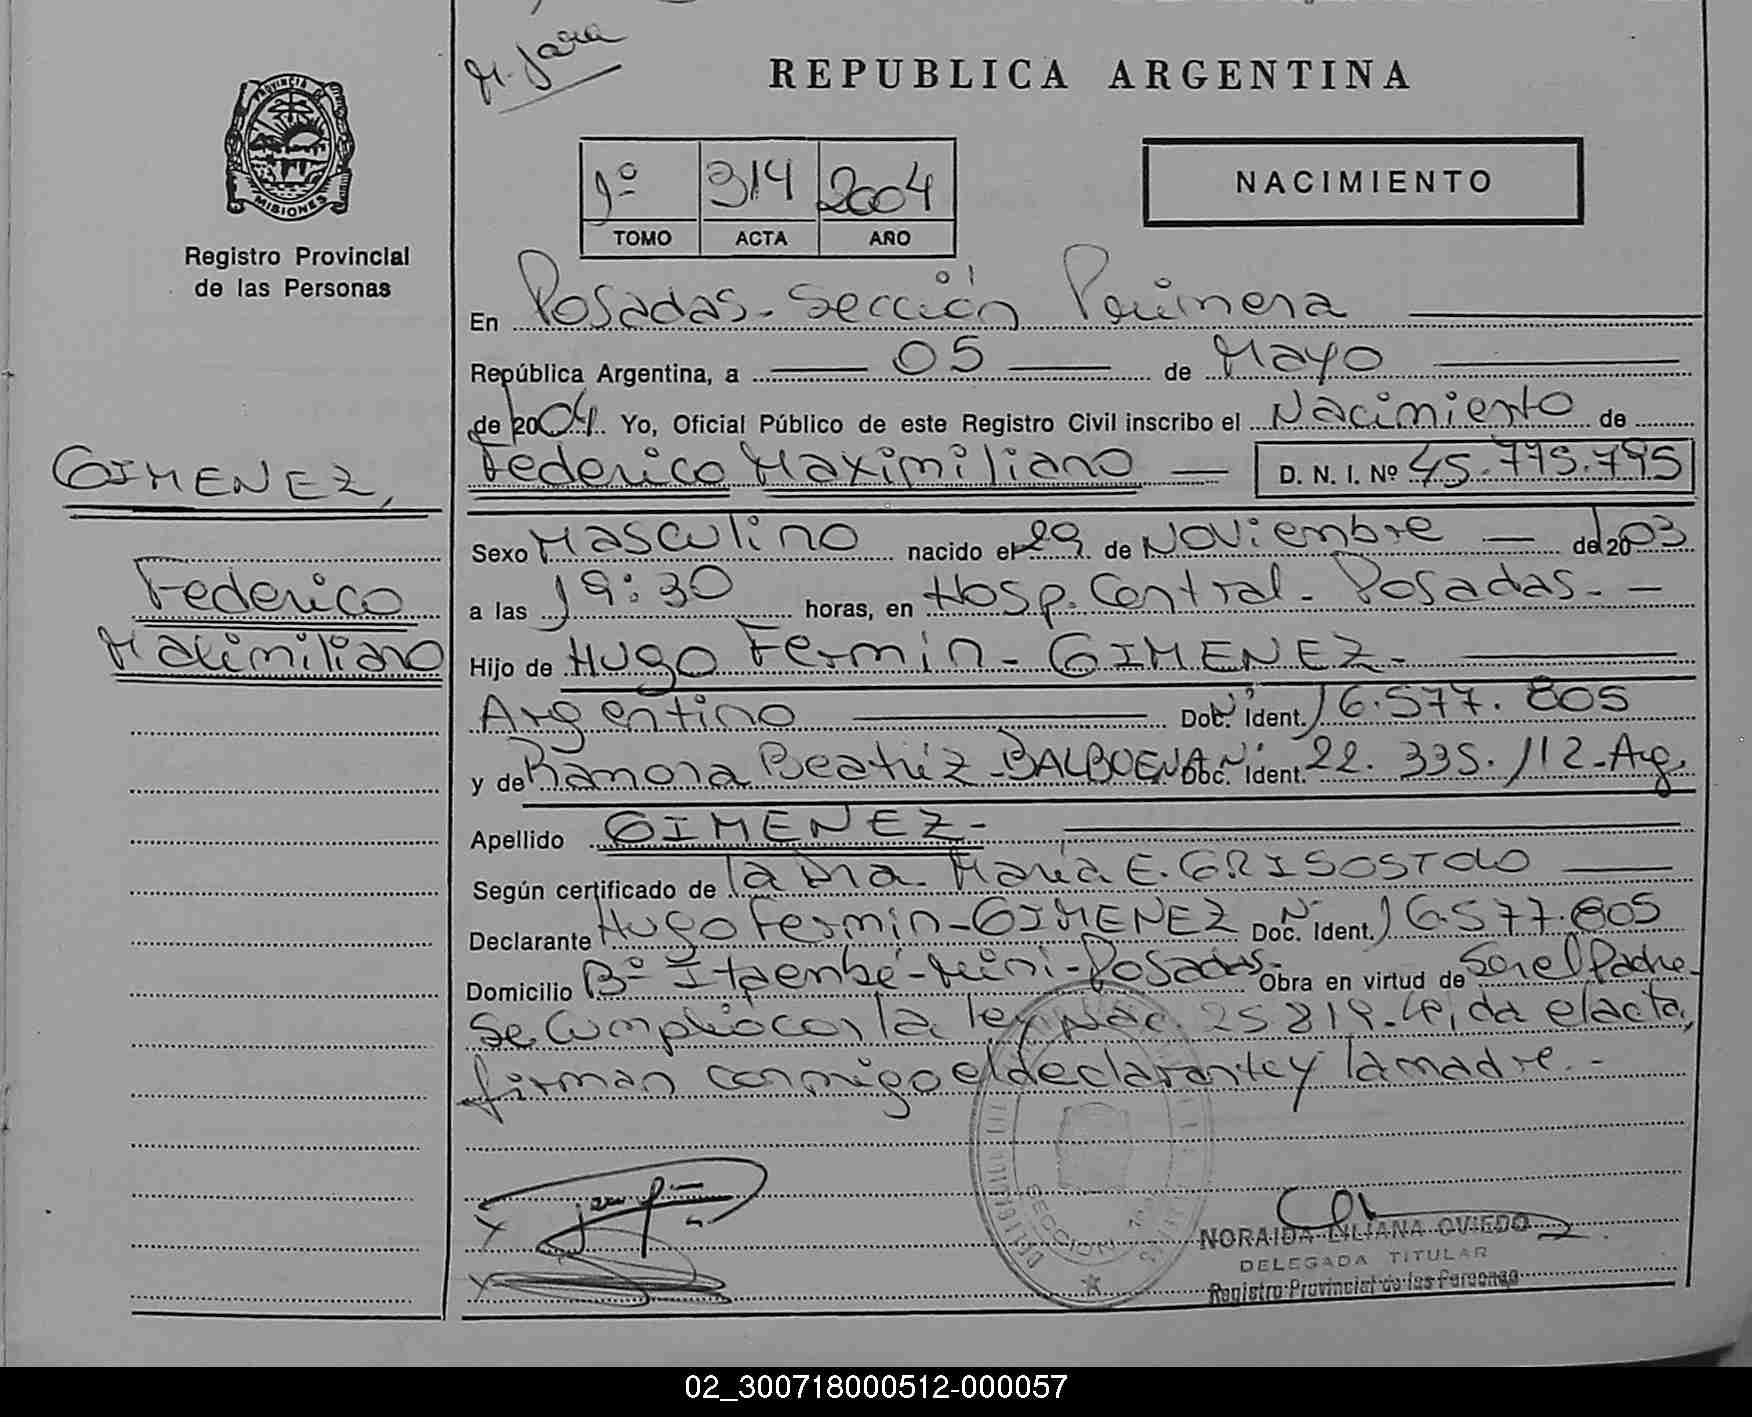 M. Jara
REPUBLICA ARGENTINA
PROVINCIA DE
MISIONES
Registro Provincial
de las Personas
1º 314 2004
TOMO ACTA AÑO
NACIMIENTO
En Posadas - Sección Primera
República Argentina, a 05 de Mayo
de 2004 Yo, Oficial Público de este Registro Civil inscribo el Nacimiento de
Federico Maximiliano D. N. I. Nº 45.775.795
GIMENEZ,
Federico
Maximiliano
Sexo Masculino nacido el 29 de Noviembre de 2003
a las 19:30 horas, en Hosp. Central - Posadas. -
Hijo de Hugo Fermin - GIMENEZ -
Argentino Doc. Nº Ident. 16.577.805
y de Ramona Beatriz - BALBUENA Doc. Nº Ident. 22.335.112 - Arg.
Apellido GIMENEZ -
Según certificado de la Dra. María E. GRISOSTOLO
Declarante Hugo Fermin - GIMENEZ Doc. Nº Ident. 16.577.805
Domicilio Bº Itaembé - Mini - Posadas - Obra en virtud de Ser el Padre -
Se cumplió con la ley Nac. 25.819. Leida el acta,
firman conmigo el declarante y la madre. -
SECCION
NORAIDA LILIANA OVIEDO
DELEGADA TITULAR
Registro Provincial de las Personas
02_300718000512-000057